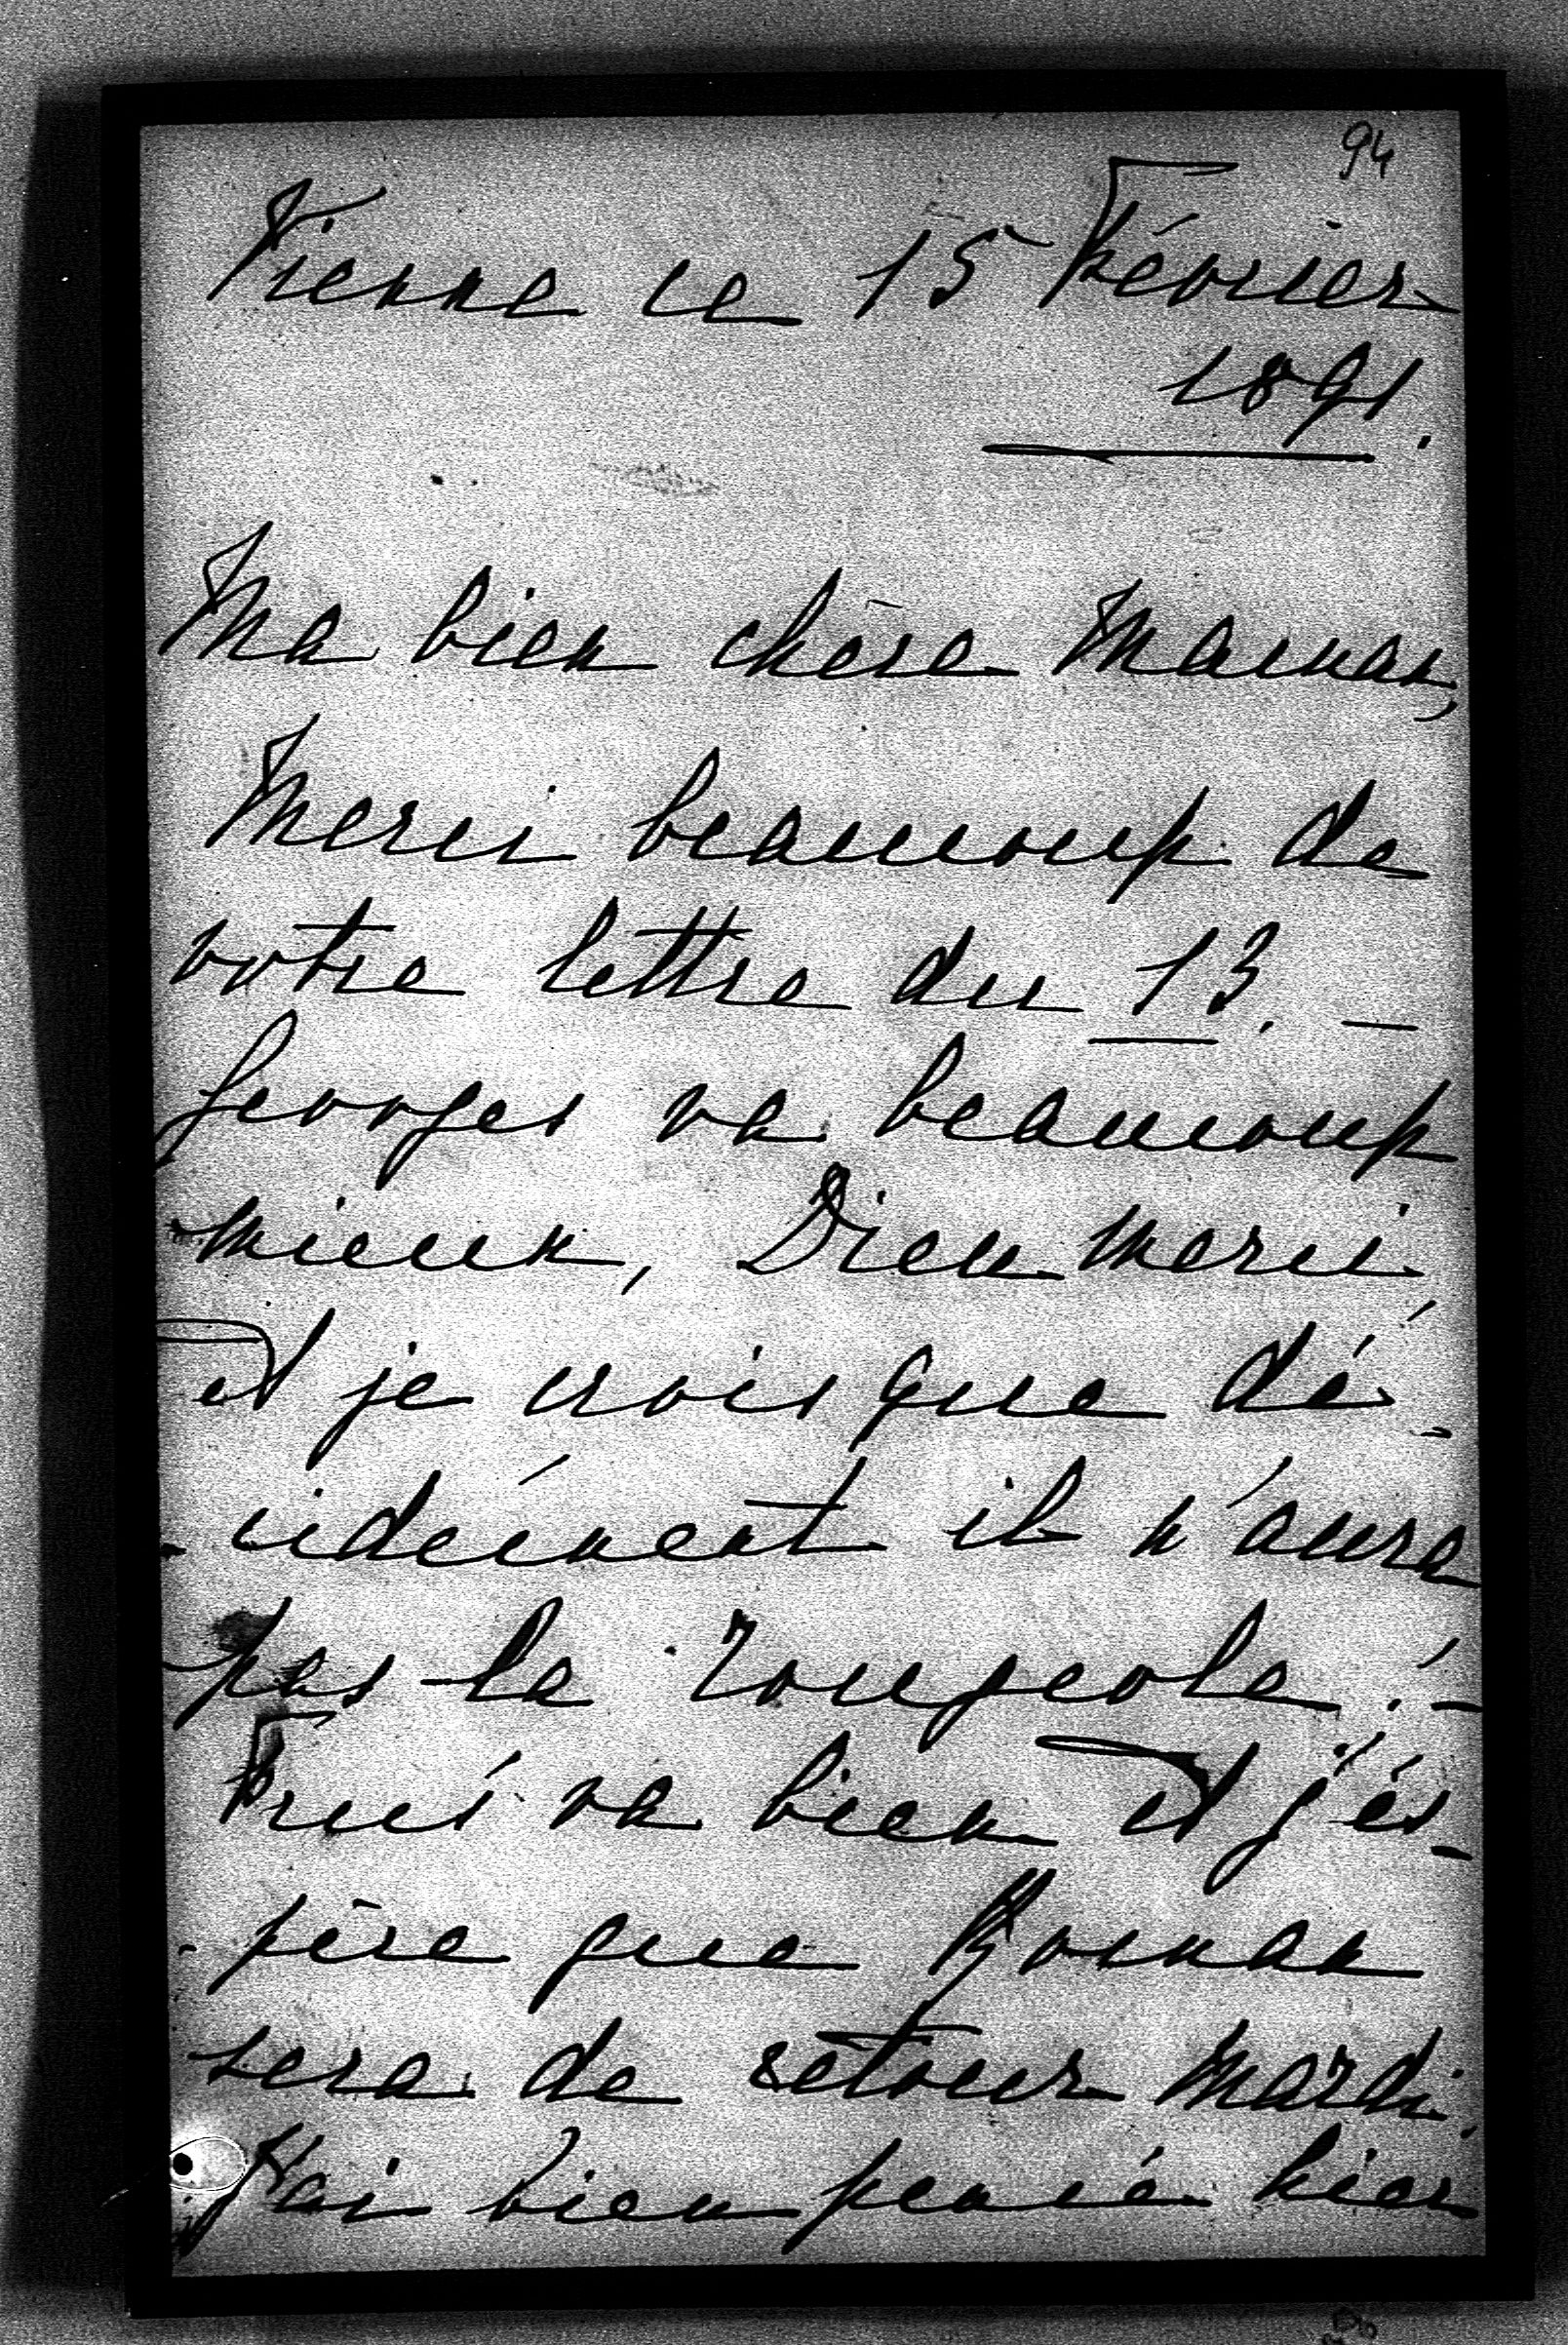 94
Vienne ce 15 Février
1891.
Ma bien chère Maman,
Merci beaucoup de
votre lettre du 13. —
Georges va beaucoup
mieux, Dieu merci
et je crois que dé-
-cidément il n'aura
pas la rougeole! -
va bien et j'és-
-père que Roman
sera de retour Mardi.
J'ai bien pensé hier